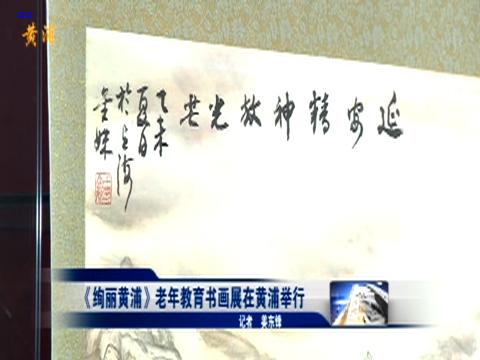 黄浦
延安精神放光芒
乙未
夏日
於上海
金妹
《绚丽黄浦》老年教育书画展在黄浦举行
记者 姜东锋